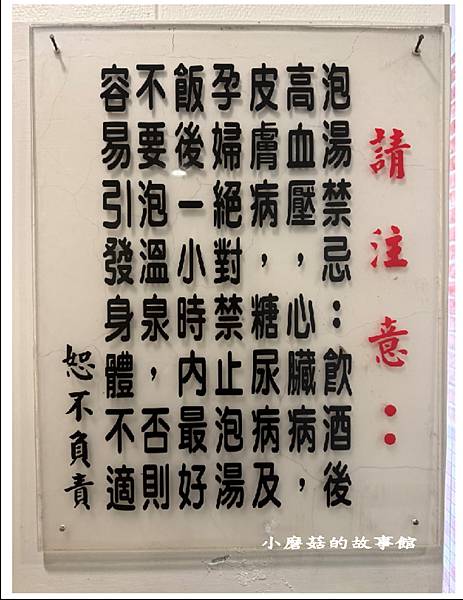 請注意：
泡湯禁忌：飲酒後
高血壓，心臟病，
皮膚病，糖尿病及
孕婦絕對禁止泡湯
飯後一小時內最好
不要泡溫泉，否則
容易引發身體不適
恕不負責
小蘑菇的故事館